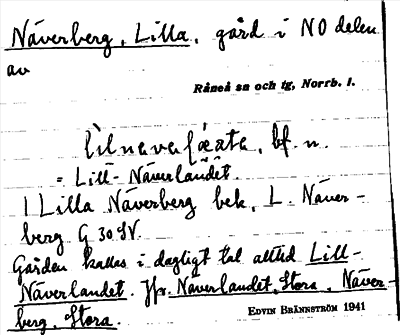 Näverberg, Lilla, gård i NO delen
av
Råneå sn och tg, Norrb. l.
bf. n.
= Lill-Näverlandet.
1 Lilla Näverberg bek. L. Näver-
berg. G 30 SV.
Gården kallas i dagligt tal alltid Lill-
Näverlandet. Jfr. Näverlandet, Stora, Näver-
berg, Stora.
EDVIN BRÄNNSTRÖM 1941